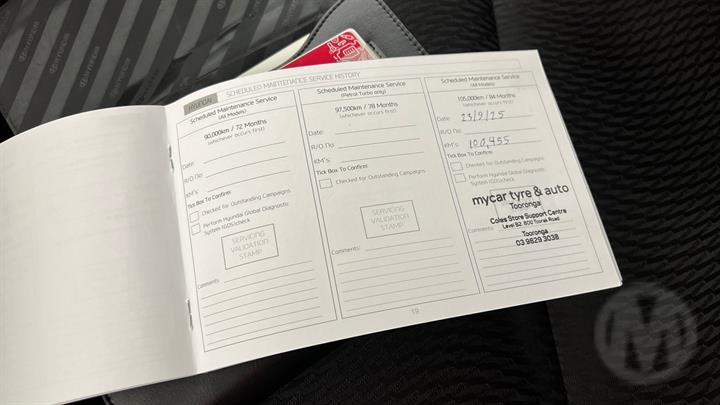 HYUNDAI
SCHEDULED MAINTENANCE SERVICE HISTORY
Scheduled Maintenance Service
(All Models)
90,000km / 72 Months
(whichever occurs first)
Date:
R/O No:
KM's:
Tick Box To Confirm:
Checked for Outstanding Campaigns
Perform Hyundai Global Diagnostic
System (GDS)check
SERVICING
VALIDATION
STAMP
Comments:
Scheduled Maintenance Service
(Petrol Turbo only)
97,500km / 78 Months
(whichever occurs first)
Date:
R/O No:
KM's:
Tick Box To Confirm:
Checked for Outstanding Campaigns
SERVICING
VALIDATION
STAMP
Comments:
Scheduled Maintenance Service
(All Models)
105,000km / 84 Months
(whichever occurs first)
Date: 23/9/25
R/O No:
KM's: 100,455
Tick Box To Confirm:
Checked for Outstanding Campaigns
Perform Hyundai Global Diagnostic
System (GDS)check
mycar tyre & auto
Tooronga
Coles Store Support Centre
Level B2, 800 Toorak Road,
Tooronga
03 9829 3038
Comments:
19
HYUNDAI
M